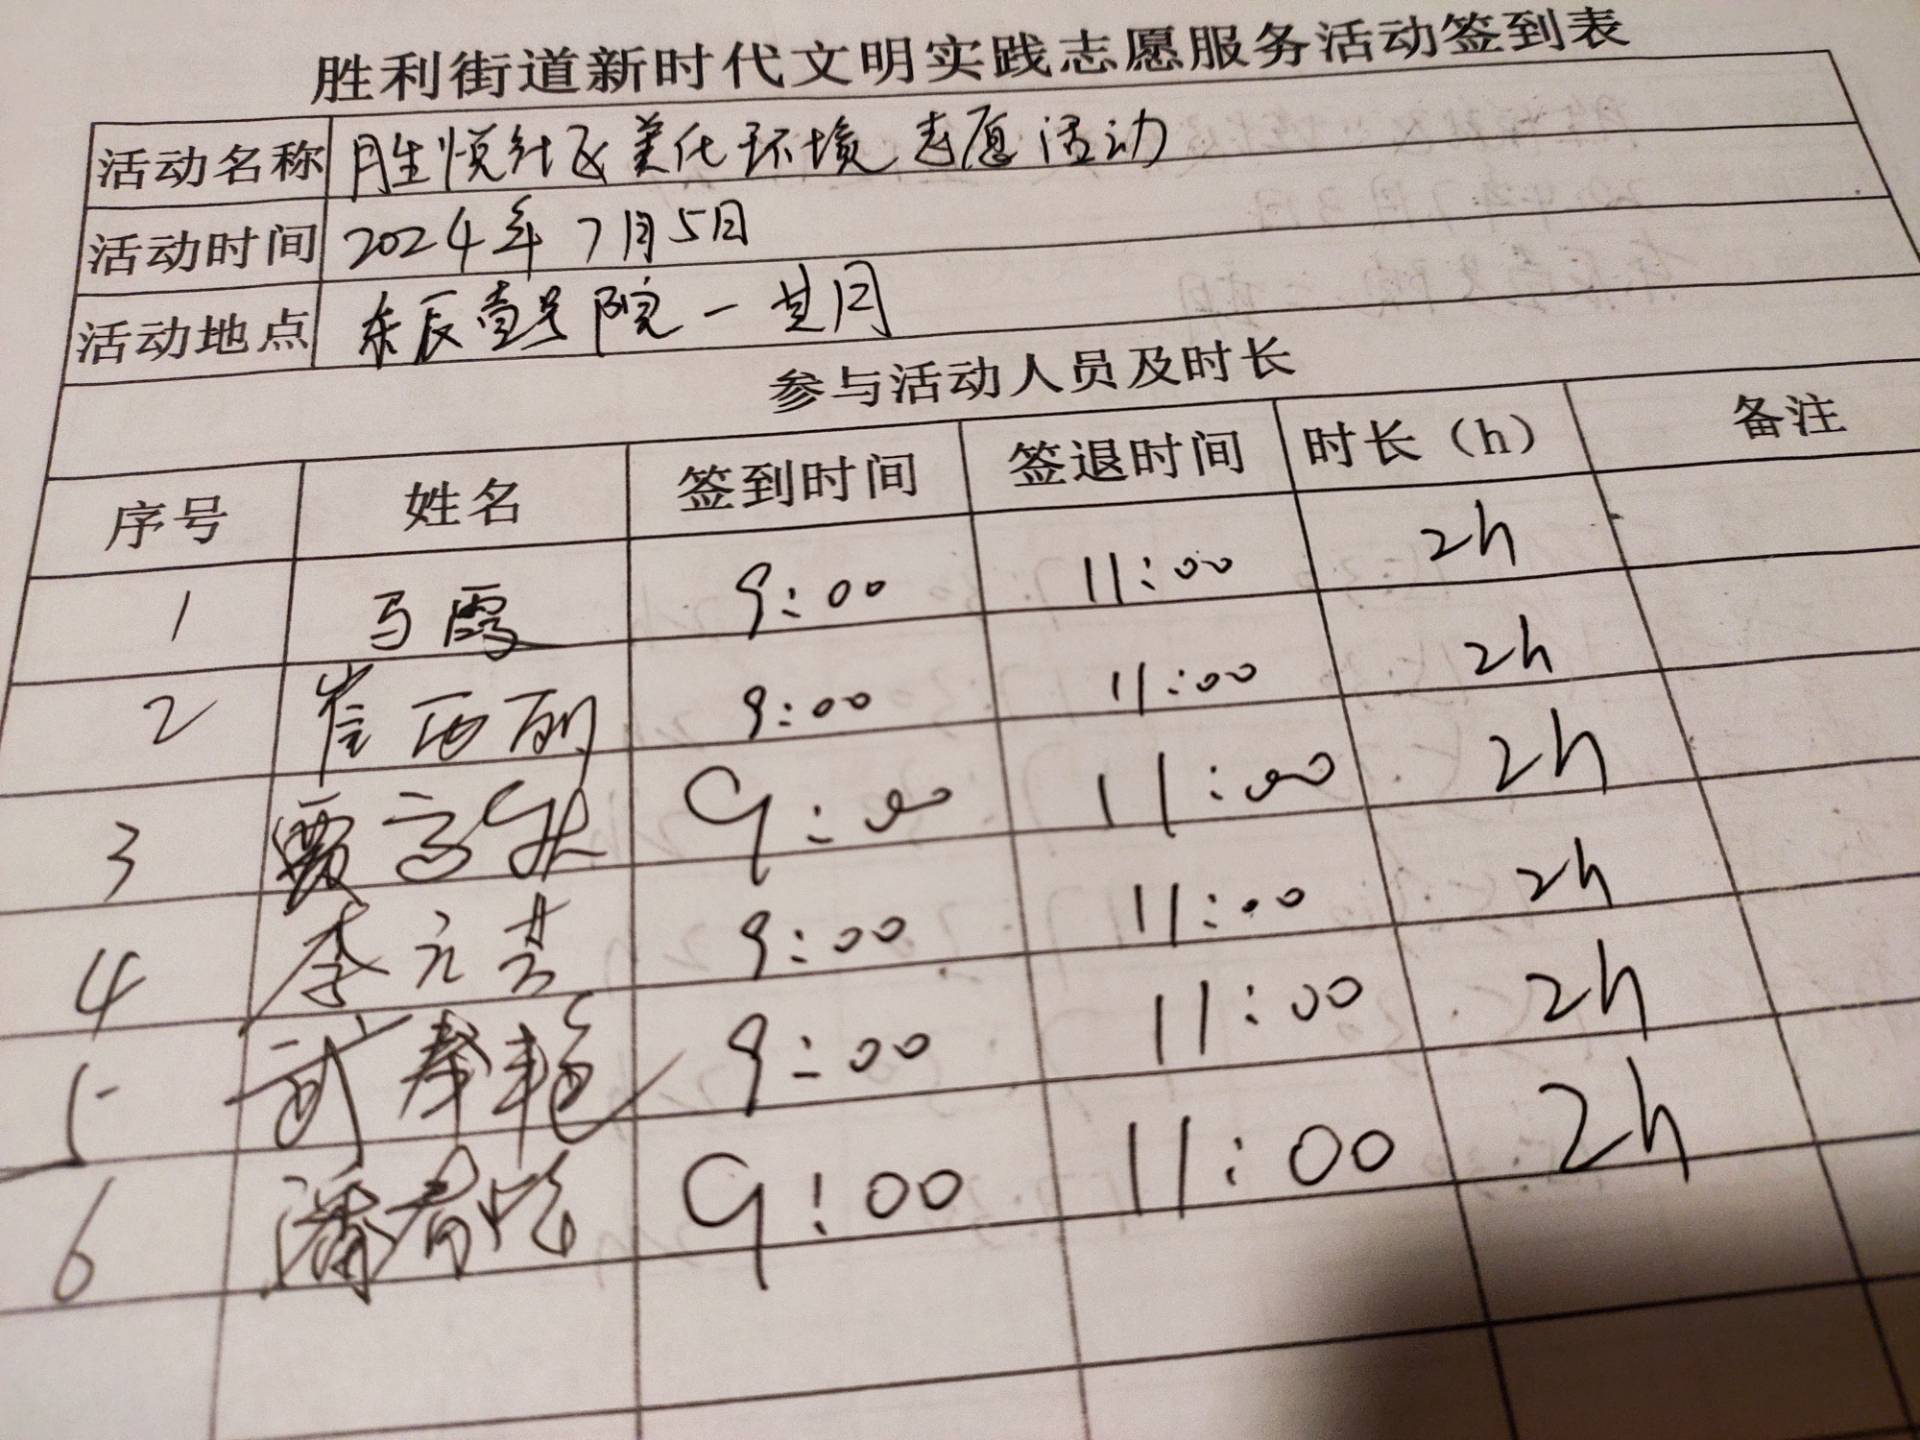 胜利街道新时代文明实践志愿服务活动签到表
活动名称 胜悦社区美化环境志愿活动
活动时间 2024年7月5日
活动地点 东辰壹号院一期
参与活动人员及时长
序号 姓名 签到时间 签退时间 时长（h） 备注
1 马霞 9:00 11:00 2h
2 崔丽 9:00 11:00 2h
3 贾 9:00 11:00 2h
4 李元芳 9:00 11:00 2h
5 武春艳 9:00 11:00 2h
6 潘春 9:00 11:00 2h